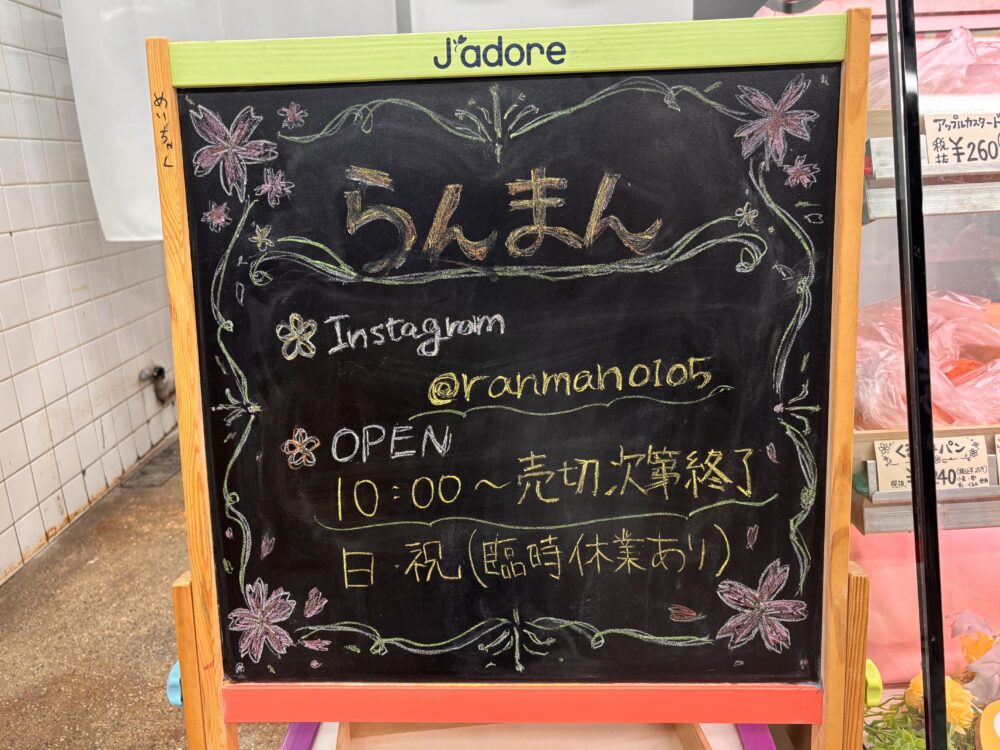 J'adore
めいちゃく
らんまん
Instagram
@ranman0105
OPEN
10:00～売切次第終了
日・祝(臨時休業あり)
アップルカスタード
税抜 ¥260
パン
税抜
240